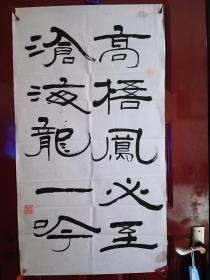 高梧鳳必至
滄海龍一吟